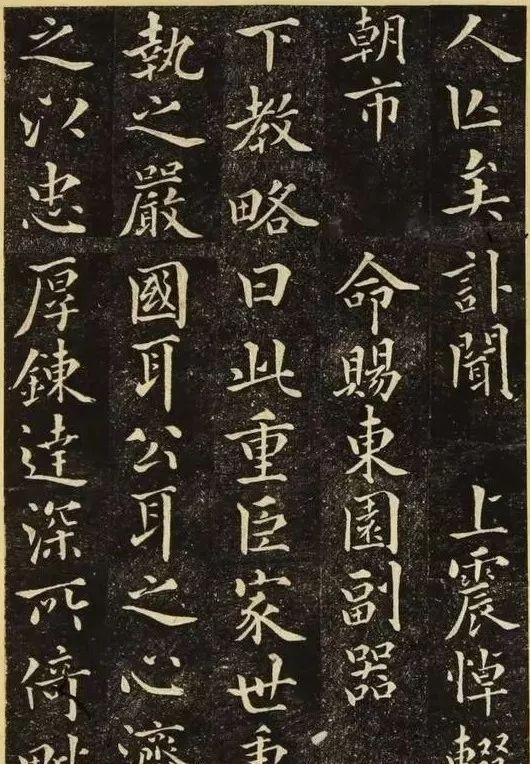 人亡矣訃聞 上震悼輟
朝市 命賜東園副器
下教略曰此重臣家世秉
執之嚴國耳公耳之心濟
之以忠厚鍊達深所倚毗